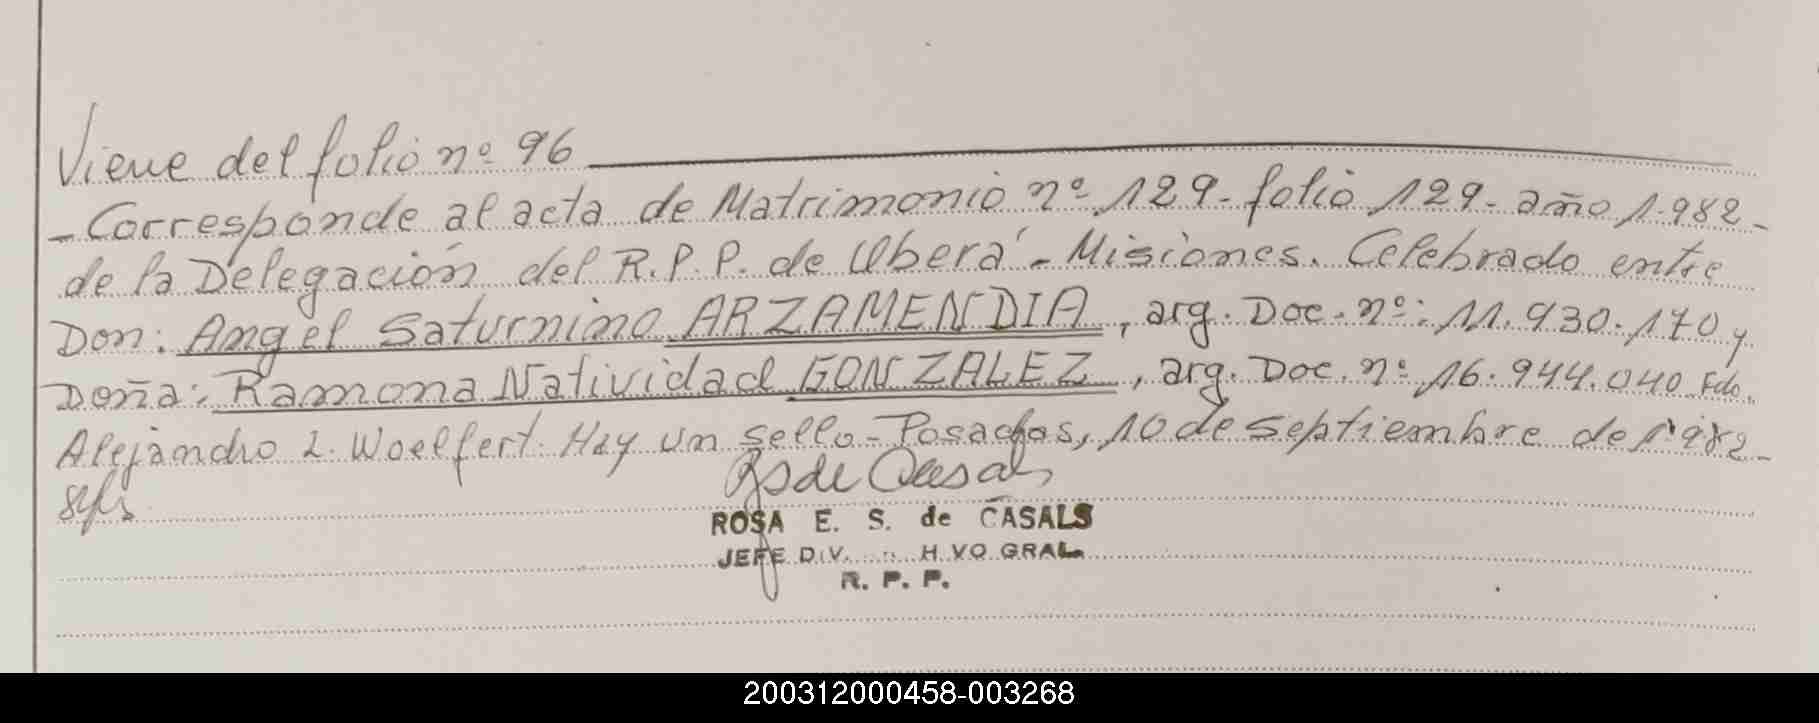 Viene del folio nº 96
- Corresponde al acta de Matrimonio nº 129 - folio 129 - año 1.982 -
de la Delegación del R.P.P. de Oberá - Misiones. Celebrado entre
Don: Angel Saturnino ARZAMENDIA, arg. Doc. nº: 11.930.170 y
Doña: Ramona Natividad GONZALEZ, arg. Doc. nº 16.944.040 Fdo.
Alejandro L. Woelfert. Hay un sello - Posadas, 10 de Septiembre de 1982 -
RS de Casals
ROSA E. S. de CASALS
JEFE DIV. H VO GRAL.
R. P. P.
200312000458-003268